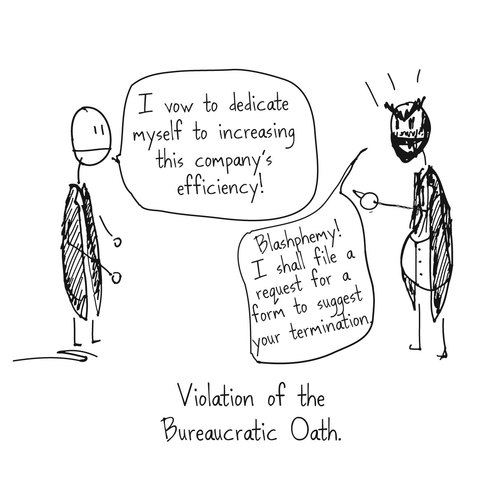 I vow to dedicate
myself to increasing
this company's
efficiency!
Blashphemy!
I shall file a
request for a
form to suggest
your termination.
Violation of the
Bureaucratic Oath.